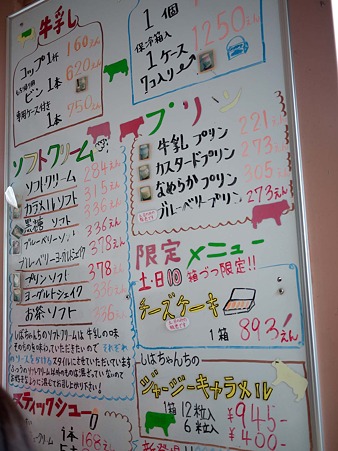 牛乳
コップ1杯 160えん
ビン 1本 620えん
専用ケース付き
1本 750えん
1個
保冷箱入
1ケース 1250えん
7コ入り
プリン
牛乳プリン 221えん
カスタードプリン 273えん
なめらかプリン 305えん
ブルーベリープリン 273えん
ソフトクリーム
ソフトクリーム 284えん
カラメルソフト 315えん
黒糖ソフト 336えん
ブルーベリーソフト 336えん
ブルーベリーヨーグルトシェイク 378えん
プリンソフト 378
ヨーグルトシェイク 336えん
お茶ソフト 336えん
しばちゃんちのソフトクリームは牛乳の味
そのものを味わっていただきたいので それぞれ
のソースをかけるスタイルにさせていただいています
限定メニュー
土・日 10箱づつ限定!!
チーズケーキ
1箱 893えん
しばちゃんちの
ジャージーキャラメル
1箱 12粒入 ¥945-
6粒入 ¥400-
スティックシュー
1本 168えん